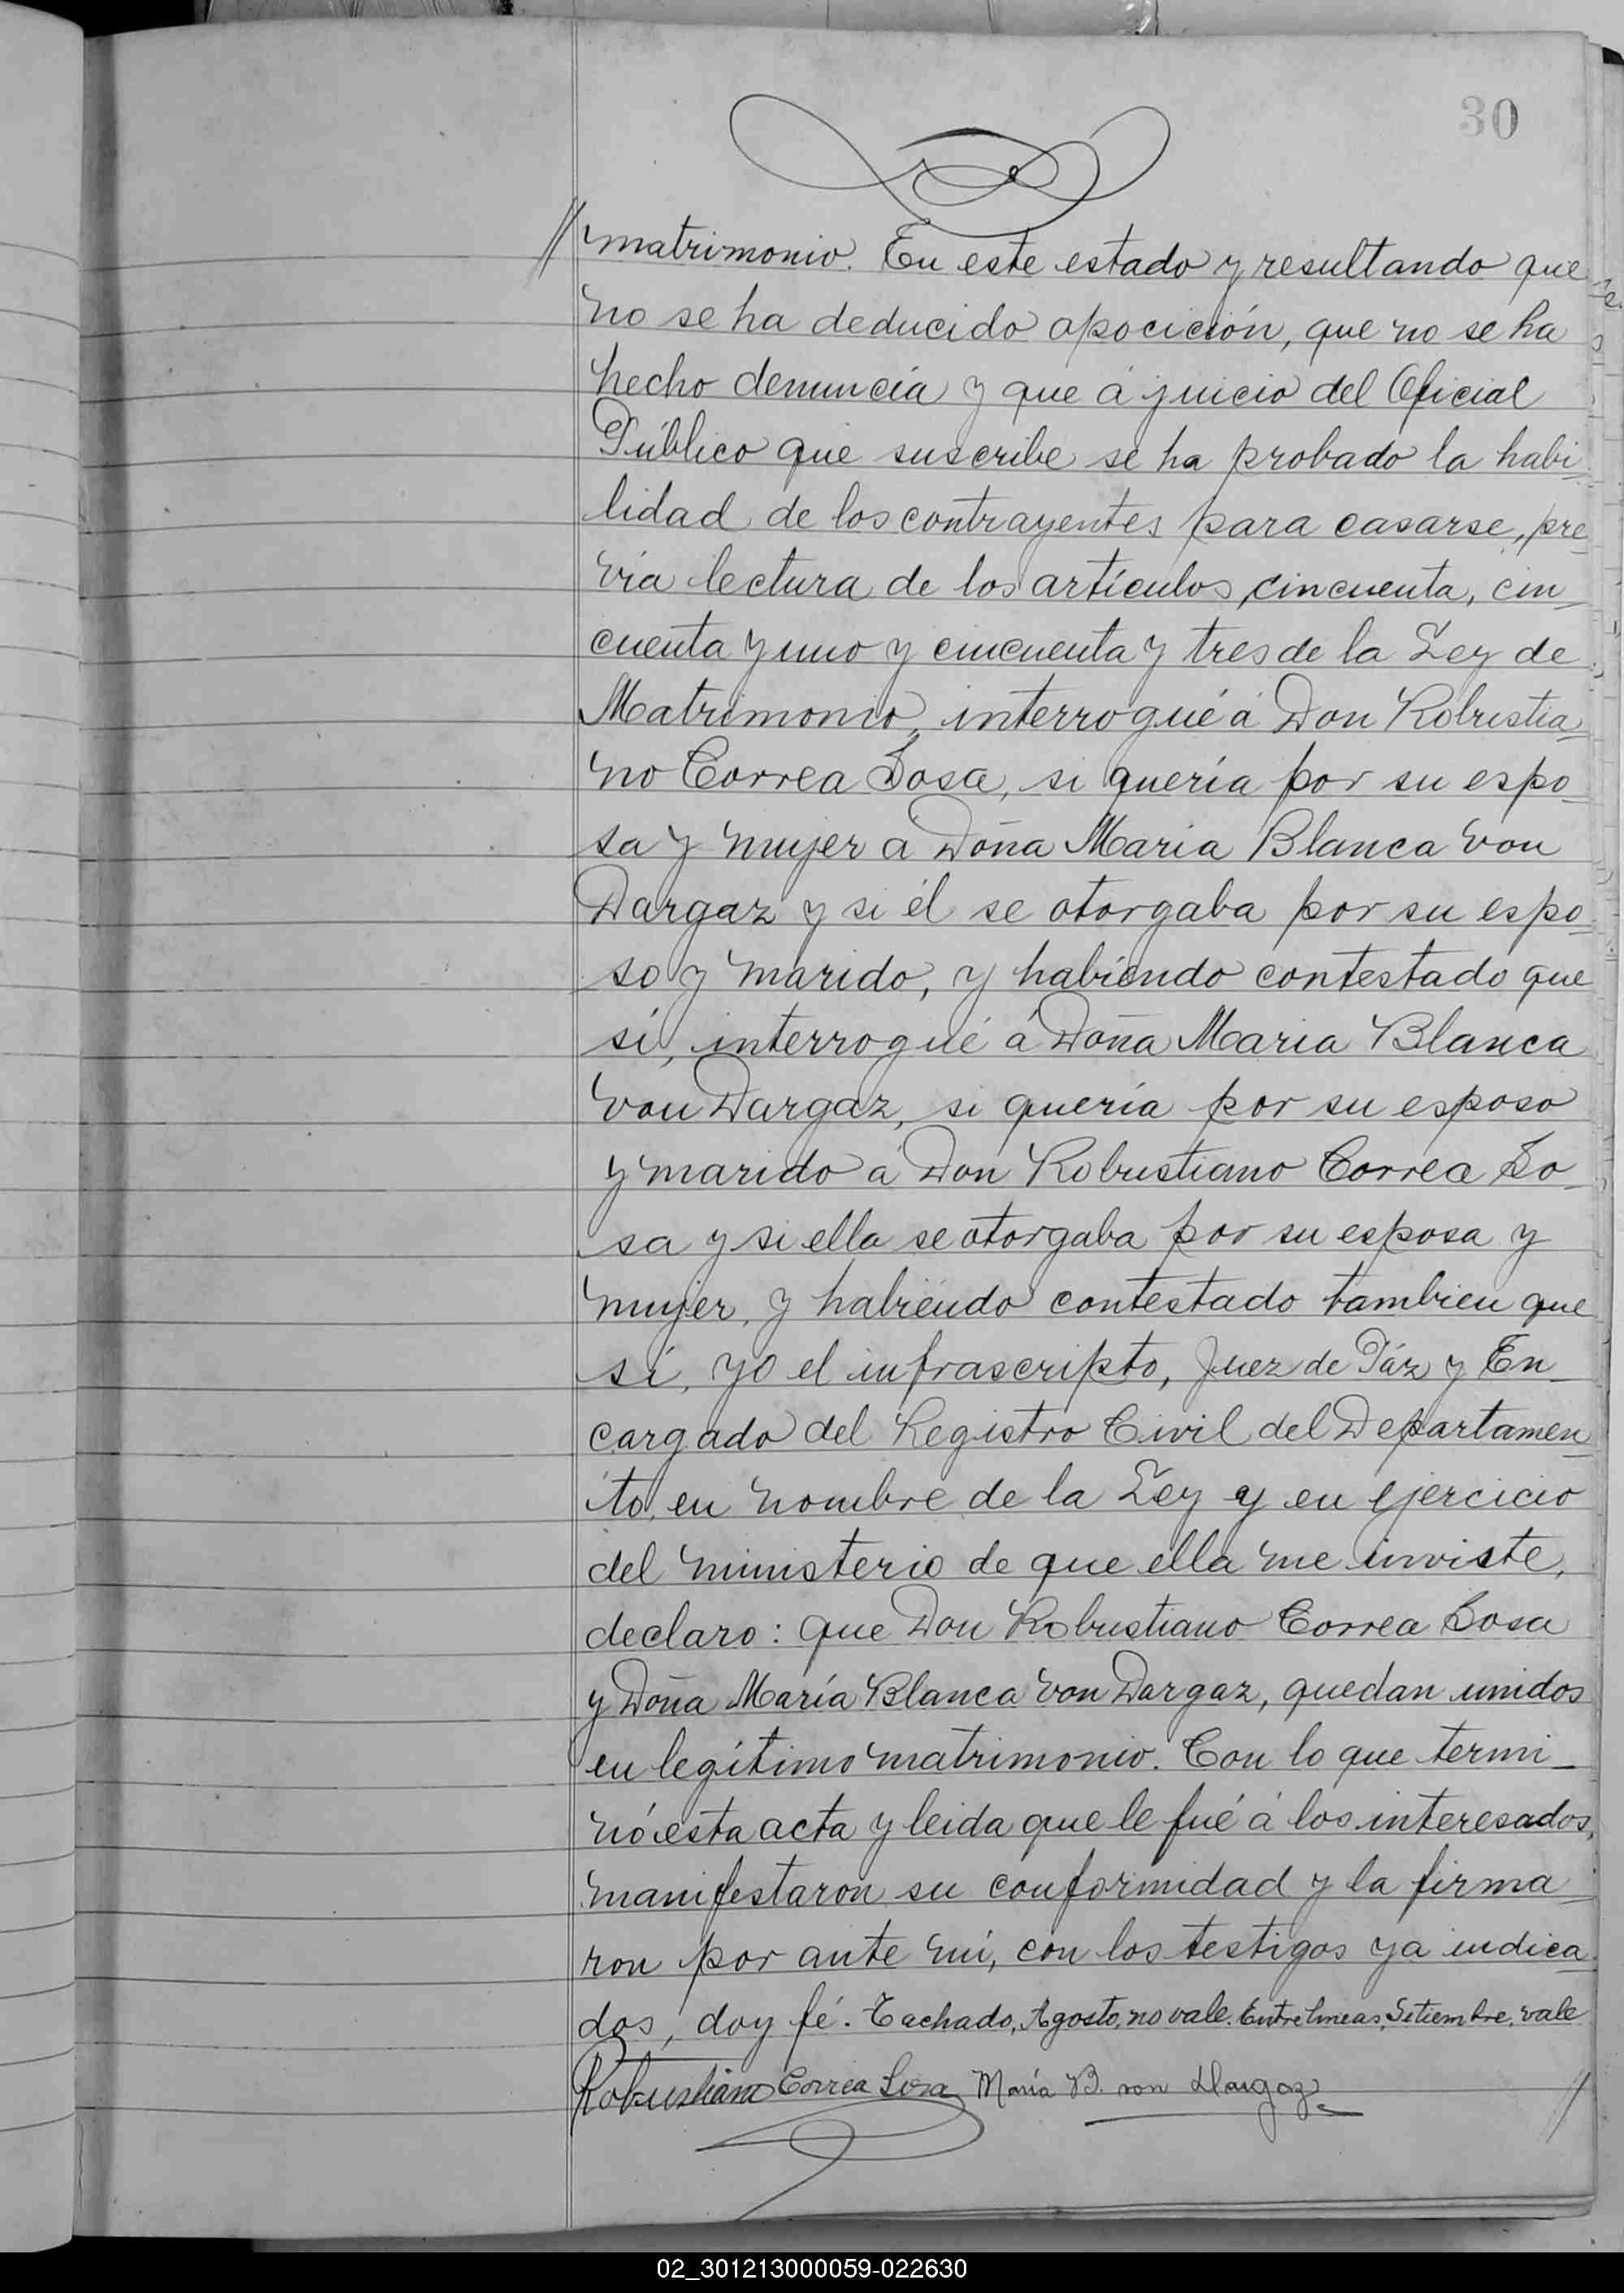 30
// matrimonio. En este estado y resultando que
no se ha deducido opocición, que no se ha
hecho denuncia y que á juicio del Oficial
Público que suscribe se ha probado la habi-
lidad de los contrayentes para casarse, pre-
via lectura de los artículos, cincuenta, cin-
cuenta y uno y cincuenta y tres de la Ley de
Matrimonio, interrogué á Don Robustia-
no Correa Sosa, si quería por su espo-
sa y mujer a Doña María Blanca von
Dargaz y si él se otorgaba por su espo-
so y marido, y habiendo contestado que
sí, interrogué á Doña Maria Blanca
von Dargaz, si quería por su esposo
y marido á Don Robustiano Correa So-
sa y si ella se otorgaba por su esposa y
mujer, y habiendo contestado tambien que
sí, yo el infrascripto, Juez de Páz y En-
cargado del Registro Civil del Departamen-
to, en nombre de la Ley y en ejercicio
del ministerio de que ella me inviste,
declaro: que Don Robustiano Correa Sosa
y Doña María Blanca von Dargaz, quedan unidos
en legítimo matrimonio. Con lo que termi-
nó esta acta y leida que le fué á los interesados,
manifestaron su conformidad y la firma-
ron por ante mí, con los testigos ya indica-
dos, doy fé. Tachado, Agosto, no vale. Entrelineas, Setiembre, vale
Robustiano Correa Sosa María B. von Dargaz //
02_301213000059-022630